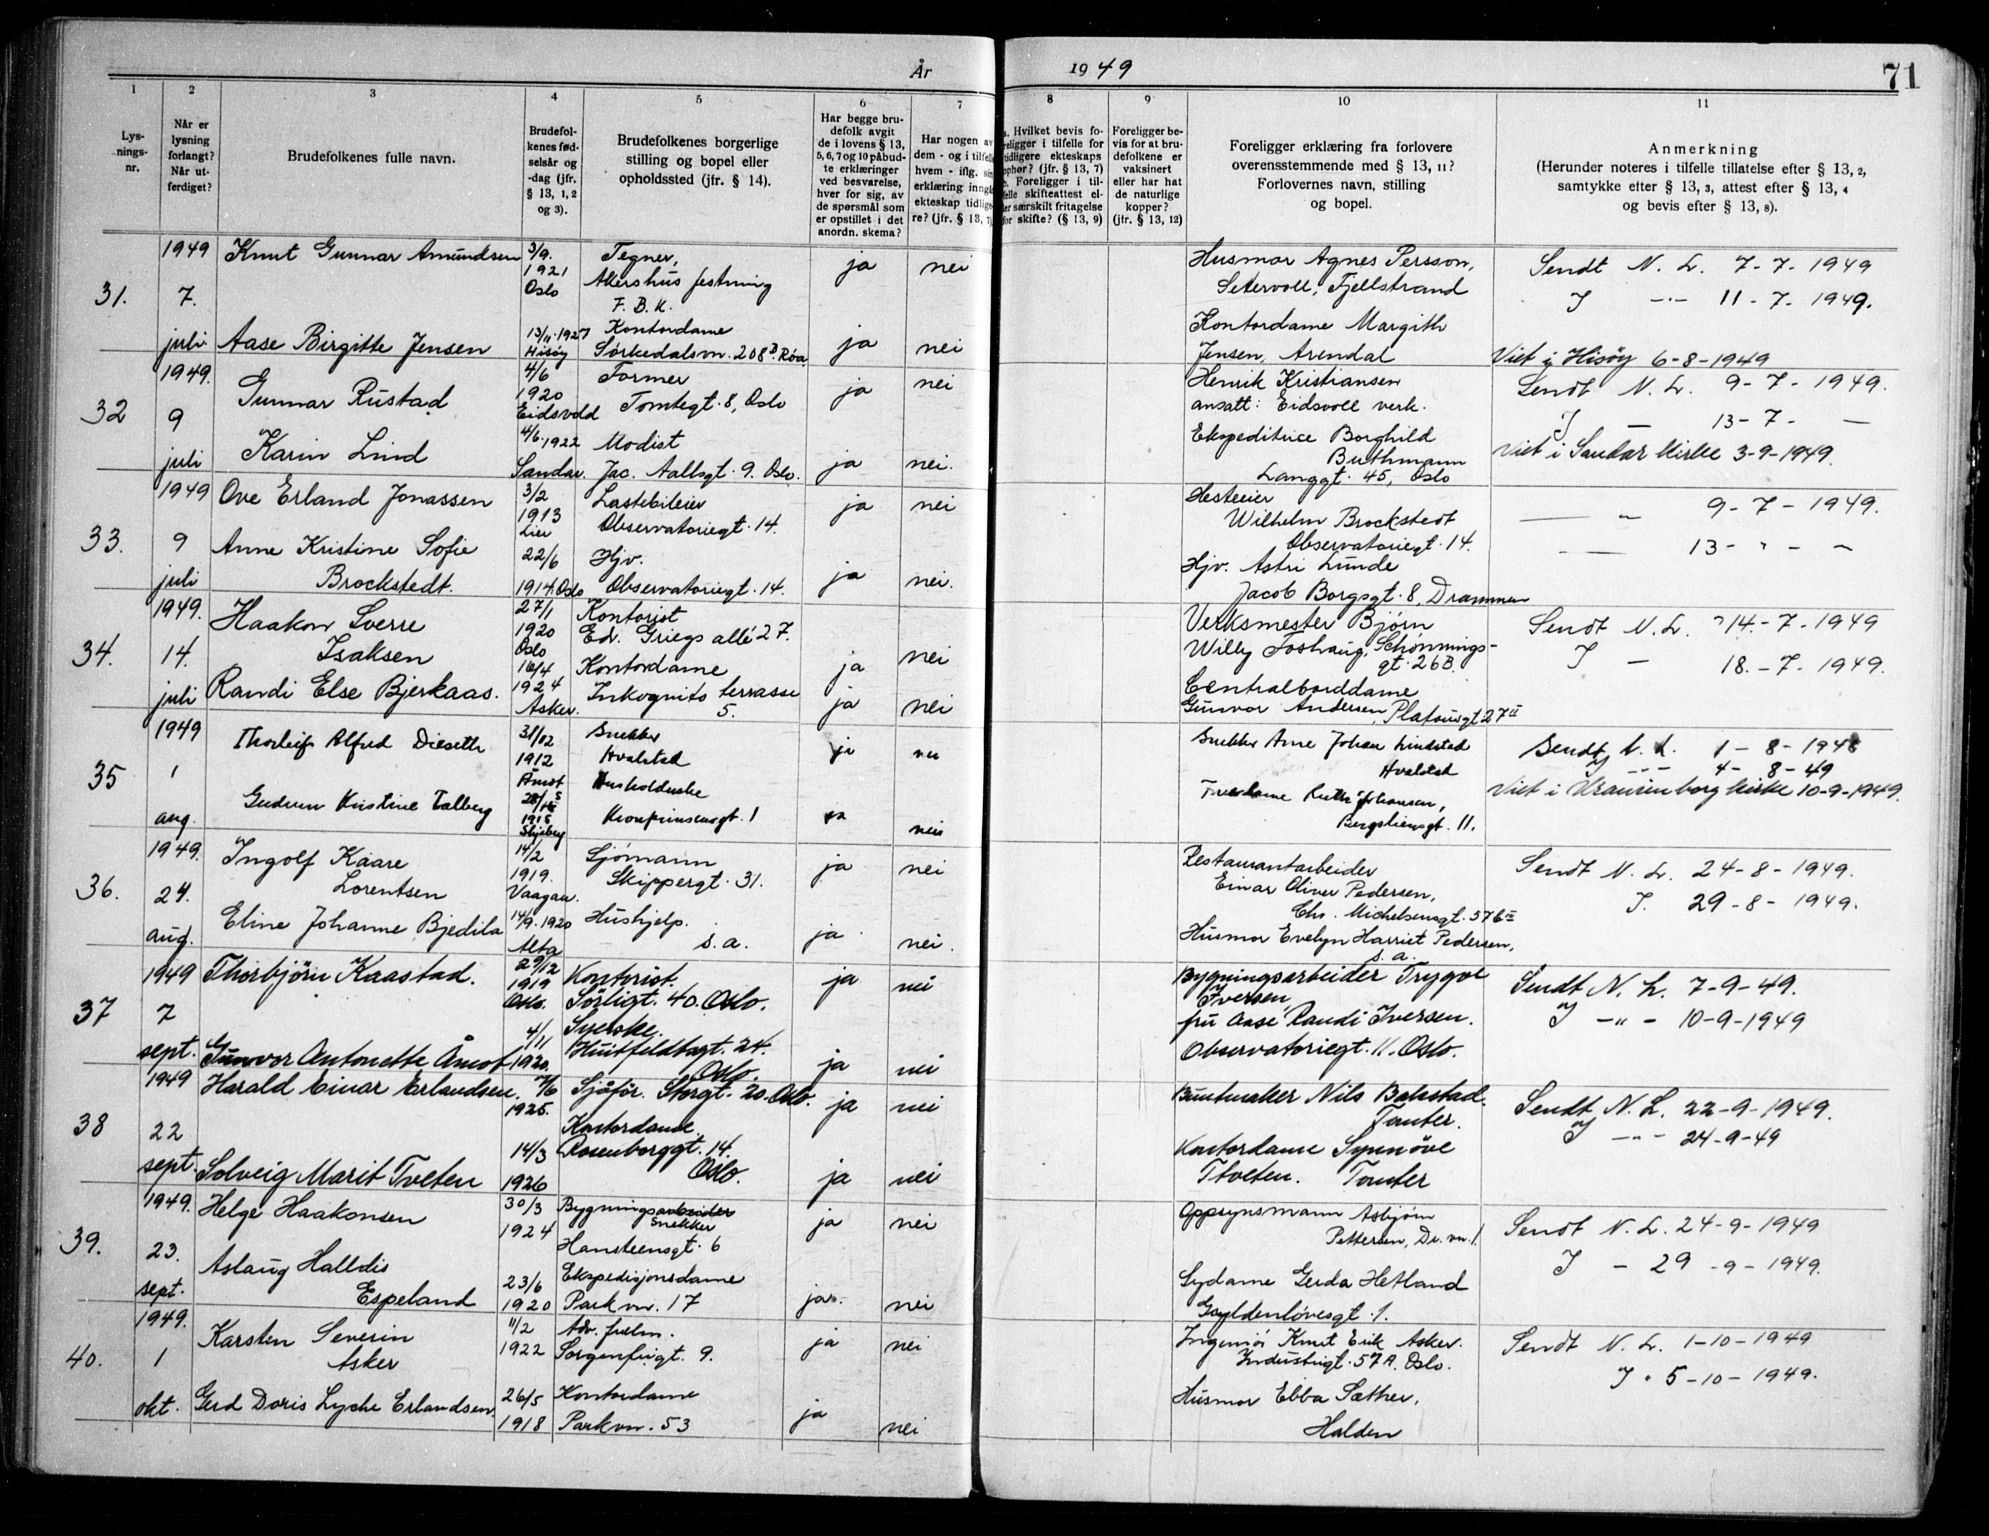 År 1949
71
1 2 3 4 5 6 7 8 9 10 11
Lys-
nings-
nr.
Når er
lysning
forlangt?
Når ut-
ferdiget?
Brudefolkenes fulle navn.
Brudefol-
kenes fød-
selsår og
-dag (jfr.
§ 13, 1, 2
og 3).
Brudefolkenes borgerlige
stilling og bopel eller
opholdssted (jfr. § 14).
Har begge bru-
defolk avgit
de i lovens § 13,
5, 6, 7 og 10 påbud-
te erklæringer
ved besvarelse,
hver for sig, av
de spørsmål som
er opstillet i det
anordn. skema?
Har nogen av
dem - og i tilfelle
hvem - iflg. sin
erklæring inngå
ekteskap tidlige-
re? (jfr. § 13, 7)
a. Hvilket bevis fo-
religger i tilfelle for
tidligere ekteskaps
ophør? (jfr. § 13, 7)
b. Foreligger i til-
felle skifteattest el-
ler særskilt fritagelse
for skifte? (§ 13, 9)
Foreligger be-
vis for at bru-
defolkene er
vaksinert
eller har hat
de naturlige
kopper?
(jfr. § 13, 12)
Foreligger erklæring fra forlovere
overensstemmende med § 13, 11?
Forlovernes navn, stilling
og bopel.
Anmerkning
(Herunder noteres i tilfelle tillatelse efter § 13, 2,
samtykke efter § 13, 3, attest efter § 13, 4
og bevis efter § 13, 8).
31.
1949
7.
juli
Knut Gunnar Amundsen
3/9.
1921
Oslo
Tegner,
Akershus festning
F. B. K.
ja
nei
Aase Birgitte Jensen
13/11. 1927
Hisøy
Kontordame
Sørkedalsvn. 208B. Røa
ja
nei
Husmor Agnes Persson,
Setervoll, Fjellstrand
Kontordame Margith
Jensen, Arendal
Sendt N. L. 7-7-1949
I -"- 11-7-1949.
Viet i Hisøy 6-8-1949
32
1949.
9
juli
Gunnar Rustad
4/6
1920
Eidsvold
Former
Tomtegt. 8, Oslo
ja
nei
Karin Lind
4/6. 1922
Sandar.
Modist
Jac. Aallsgt. 9. Oslo.
ja
nei.
Henrik Kristiansen
ansatt: Eidsvoll verk.
Ekspeditrice Borghild
Buthmann
Langgt. 45, Oslo
Sendt N. L. 9-7-1949.
I — 13-7- —
Viet i Sandar kirke 3-9-1949.
33.
1949
9
juli
Ove Erland Jonassen
3/2
1913
Lier
Lastebileier
Observatoriegt. 14.
ja
nei
Anne Kristine Sofie
Brockstedt.
22/6
1914. Oslo
Hjv.
Observatoriegt. 14.
ja
nei.
Hesteeier
Wilhelm Brockstedt
Observatoriegt. 14.
Hjv. Astri Lunde
Jacob Borgsgt. 8, Drammen
— " 9-7-1949.
— 13- " - -
34.
1949.
14.
juli
Haakon Sverre
Isaksen
27/1
1920
Oslo
Kontorist
Edv. Griegs allé 27.
ja
nei
Randi Else Bjerkaas.
16/4
1924
Asker.
Kontordame
Inkognito terrasse
5.
ja
nei
Verksmester Bjørn
Willy Foshaug, Schønnings-
gt. 26B.
Centralborddame
Gunvor Andersen, Platousgt 27 II
Sendt N. L. 14.-7-1949
I - 18.-7-1949.
35
1949
1
aug.
Thorleif Alfred Dieseth
1912
Åmot
Snekker
Hvalstad
ja
nei
Gudrun Kristine Talberg
1915
Skjeberg
Husholderske
Kronprinsensgt. 1
ja
nei
Snekker Arne Johan Lindstad
Hvalstad
Ruth Johansen,
Bergsliensgt. 11.
Sendt N. L. 1-8-1948
I -"- 4-8-49
Viet i Uranienborg kirke 10-9-1949.
36.
1949.
24.
aug.
Ingolf Kaare
Lorentsen
14/2
1919.
Vaagan.
Sjømann
Skippergt. 31.
ja
nei
Eline Johanne Bjedila
14/9. 1920
Alta
Hushjelp.
s. a.
ja
nei.
Restaurantarbeider
Einar Oliver Pedersen,
Chr. Michelsensgt. 57b III
Husmor Evelyn Harriet Pedersen,
s. a.
Sendt N. L. 24-8-1949.
I. 29-8-1949.
37
1949
7
sept.
Thorbjörn Kaastad.
29/12
1919
Oslo.
Kontorist.
Sörligt. 40. Oslo.
ja
nei
Gunvor Antonette Åmot
4/11
1920.
Syerske.
Huitfeldtsgt. 24.
Oslo.
ja
nei
Bygningsarbeider Trygve
Iversen,
fru Aase Randi Iversen.
Observatoriegt. 11. Oslo.
Sendt N. L. 7-9-49.
I -"- 10-9-1949
38
1949
22
sept.
Harald Einar Erlandsen.
7/6
1925.
Sjåför. Storgt. 20. Oslo.
ja
nei
Solveig Marit Tveten
14/3
1926
Kontordame.
Rosenborggt. 14.
Oslo.
ja
nei
Buntmaker Nils Bakstad.
Tomter.
Kontordame Synnöve
Tveten. Tomter
Sendt N. L. 22-9-1949.
I -"- 24-9-49
39.
1949.
23.
sept.
Helge Haakonsen
30/3
1924
Bygningsarbeider
Snekker
Hansteensgt. 6
ja
nei
Aslaug Halldis
Espeland
23/6
1920
Ekspedisjonsdame
Parkvn. 17
ja.
nei
Oppsynsmann Asbjørn
Pettersen, Dr. vn. 1
Sydame Gerda Hetland
Gyldenløvesgt. 1.
Sendt N. L. 24-9-1949
I - 29-9-1949.
40.
1949.
1
okt.
Karsten Severin
Asker
11/2
1922
Adv. fullm.
Sorgenfrigt. 9.
ja
nei
Gerd Doris Lyche Erlandsen.
26/5
1918
Kontordame
Parkvn. 53
ja
nei
Ingeniør Knut Erik Asker.
Industrigt. 57A. Oslo.
Husmor Ebba Sæther,
Halden
Sendt N. L. 1-10-1949
I " 5-10-1949.